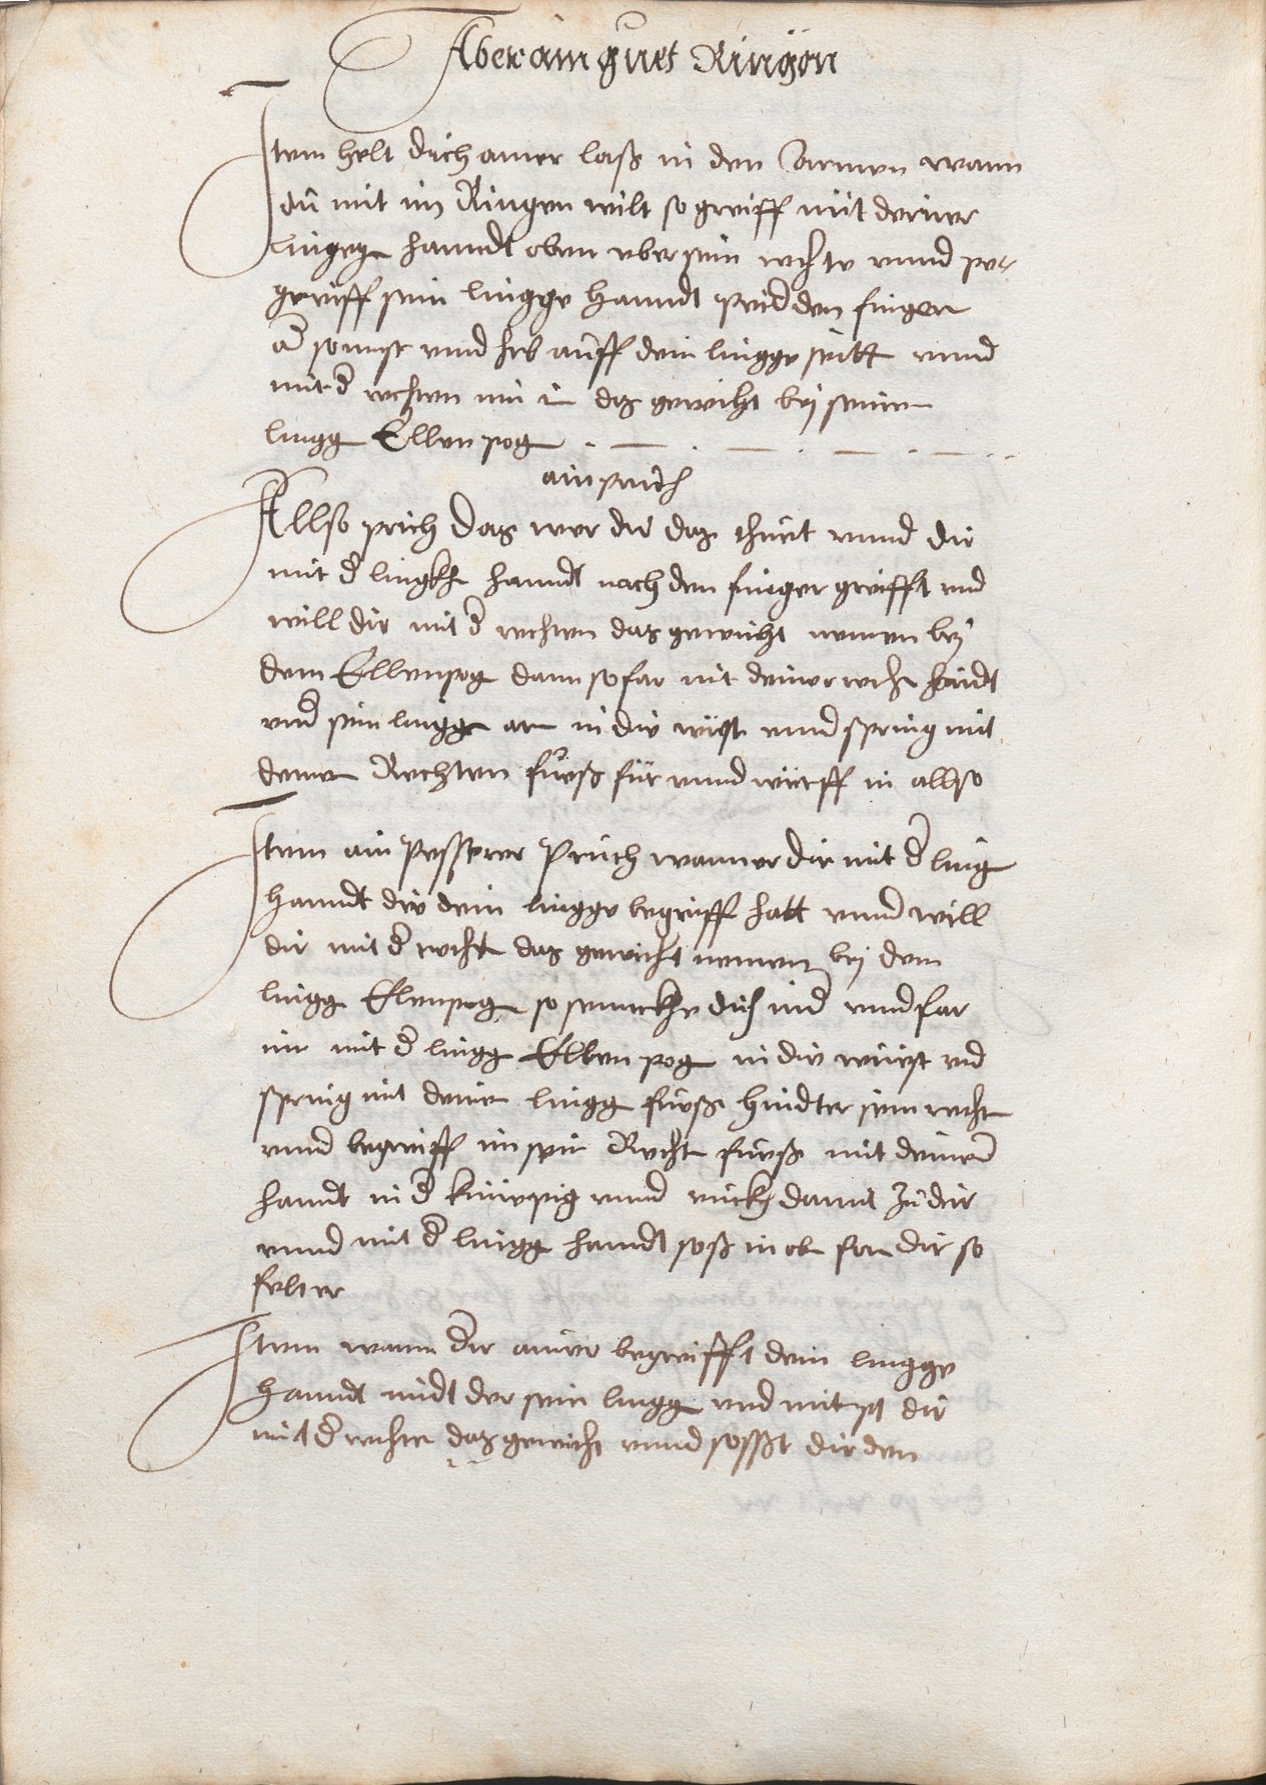 Aber ain guet Ringen
Item helt dich ainer laß in den Armen wann
du mit im Ringen wilt so greiff mit deiner
linggen hanndt oben vber sein rechte vnnd pe-
greiff sein lingge hanndt peid den finger
od sonnst vnnd heb auff dein lingge seitt vnnd
mit d rechten nim im das gewicht bej seinem
lingg Ellenpog
ain pruch
Allso prich das wer dir das thuet vnnd dir
mit d lingkh hanndt nach den finger greifft vnd
will dir mit d rechten das gewicht nemen bej
dem Ellenpog dann so far mit deiner rech handt
vnd sein lingge arm in die wüst vnnd spring mit
deinem Rechten fueß für vnnd würff in allso
Item ain pesserer Pruch wann er dir mit d ling
hanndt die dein lingge begriff hatt vnnd will
dir mit d recht das gewicht nemen bej dem
lingg Elenpog so sennckhe dich nid vnnd far
im mit d lingg Ellenpog in die wüest vnd
spring mit deinem lingg fueß hindter sein recht
vnnd begreiff im sein Recht fueß mit deiner
handt in d kniepig vnnd ruckh damit zu dir
vnnd mit d lingg handt stoß in ob fon dir so
felt er
Item wann dir ainer begreifft dein lingge
hanndt mit der sein lingg vnd nimpt dir
mit d rechte das gewicht vnnd stosst dir den